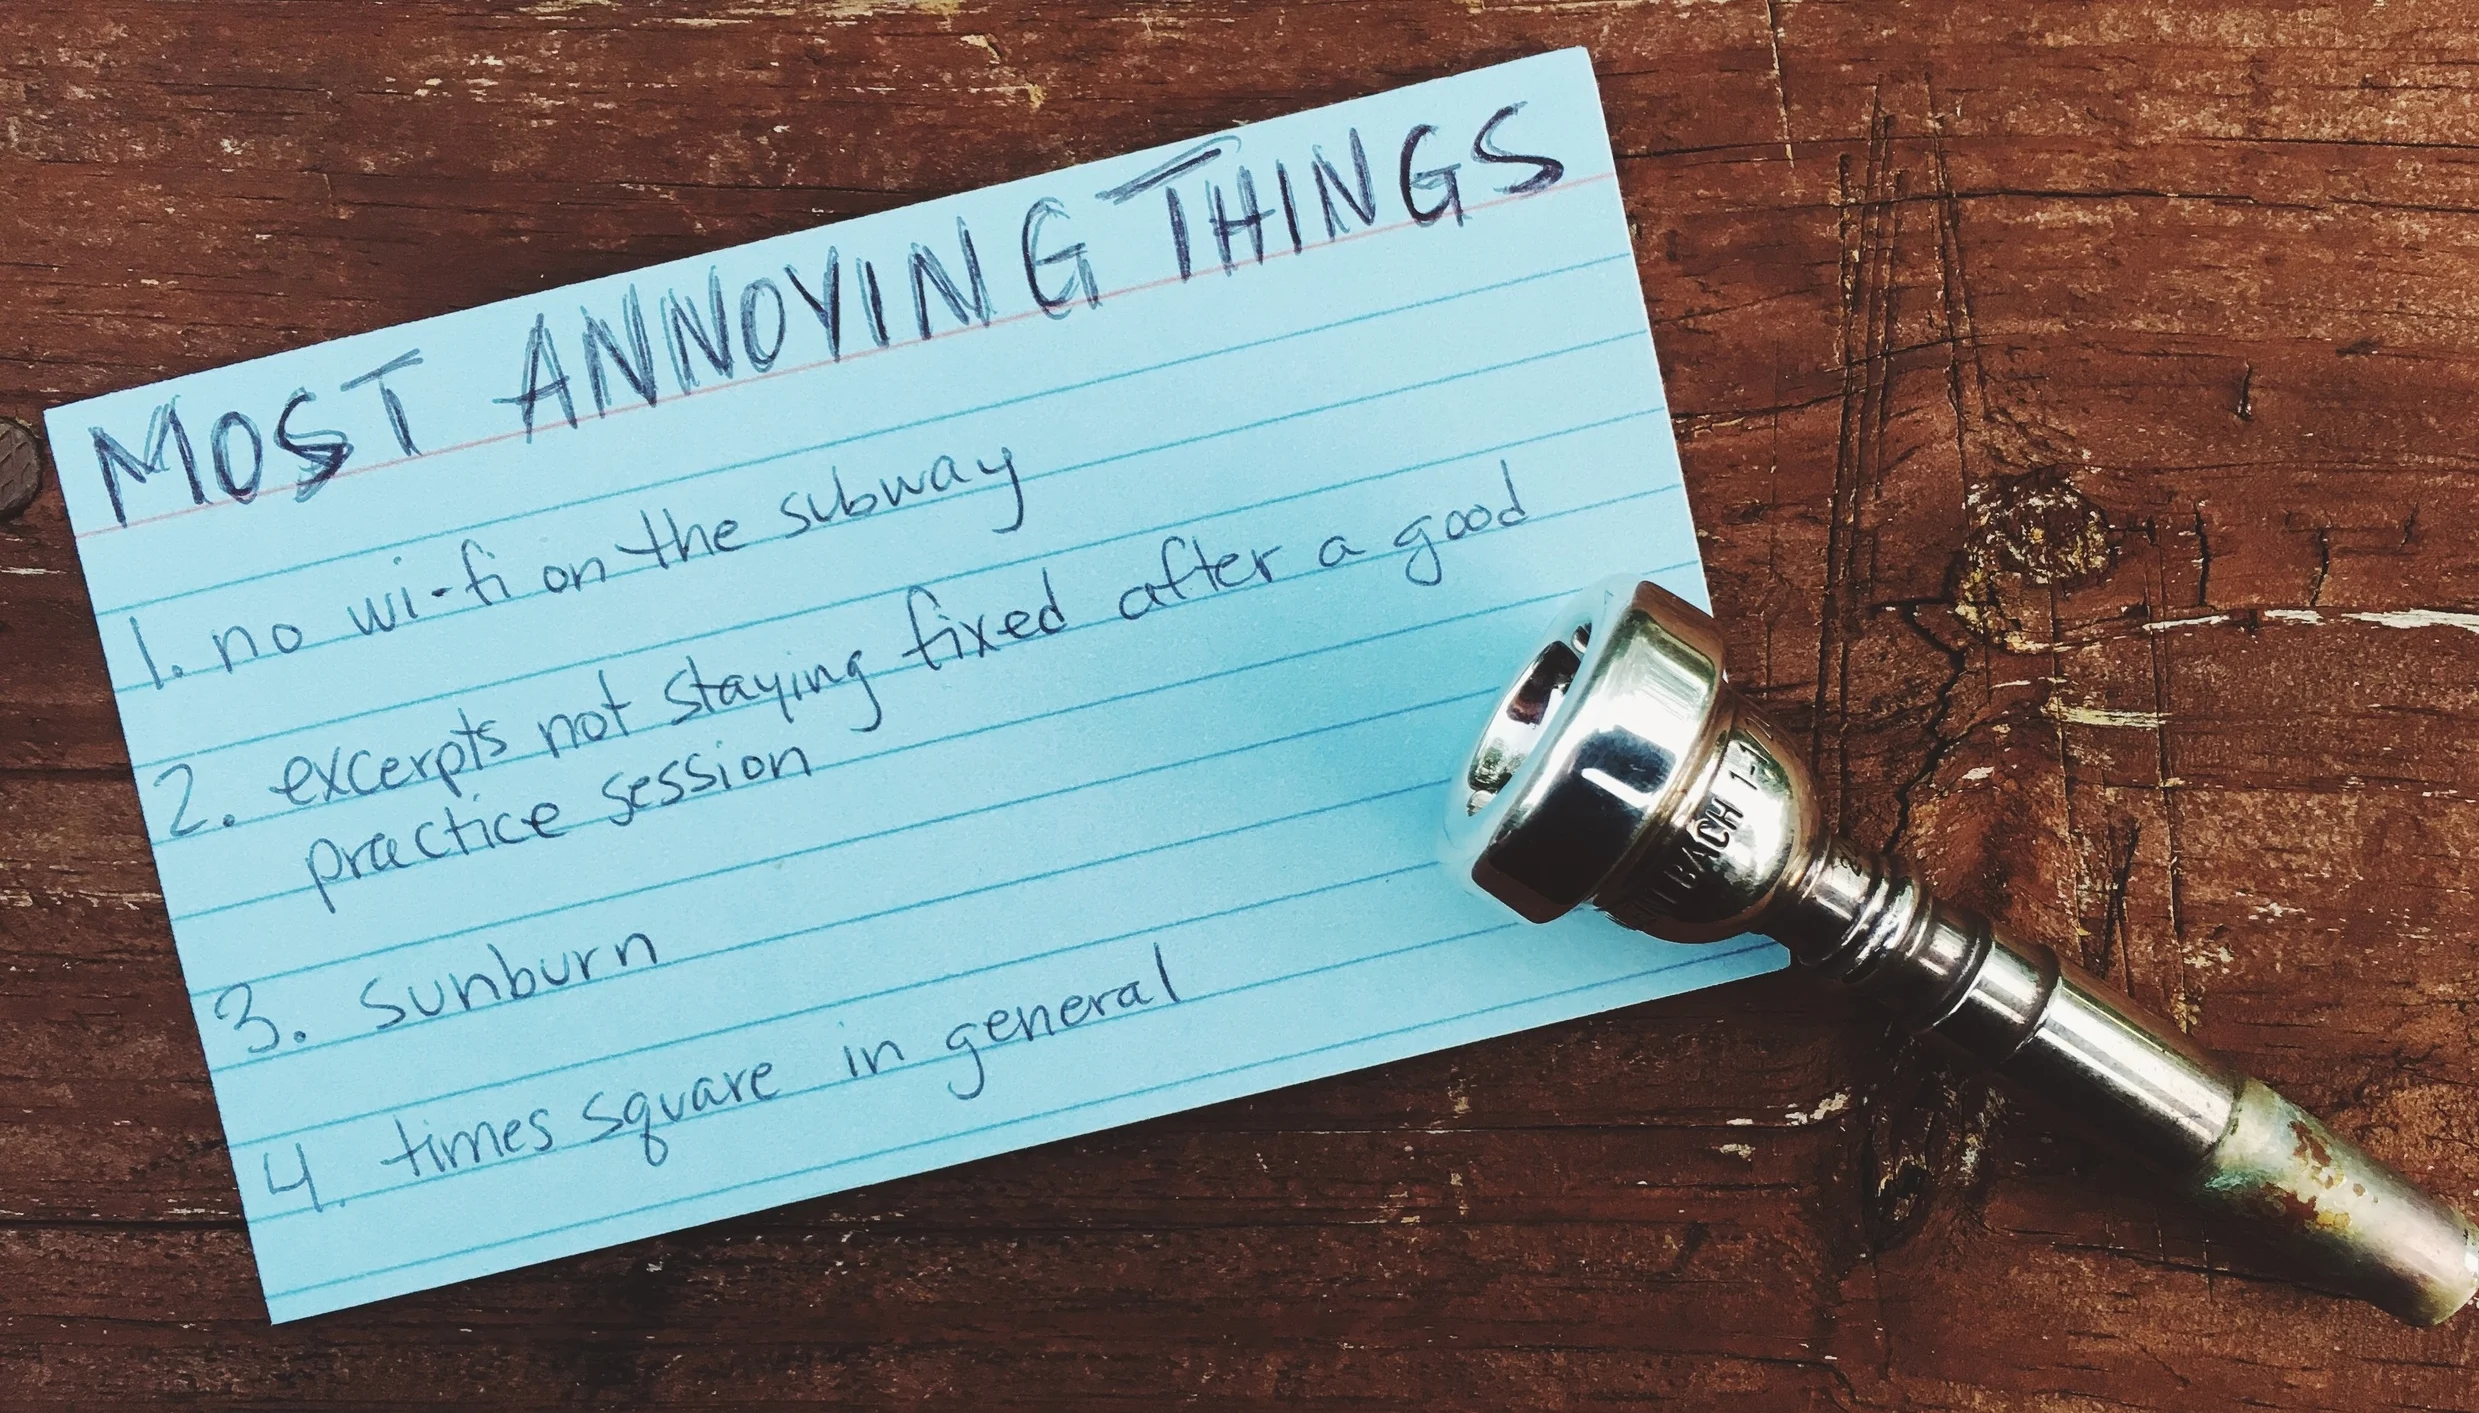 MOST ANNOYING THINGS
1. no wi-fi on the subway
2. excerpts not staying fixed after a good
practice session
3. sunburn
4. times square in general
BACH 1-